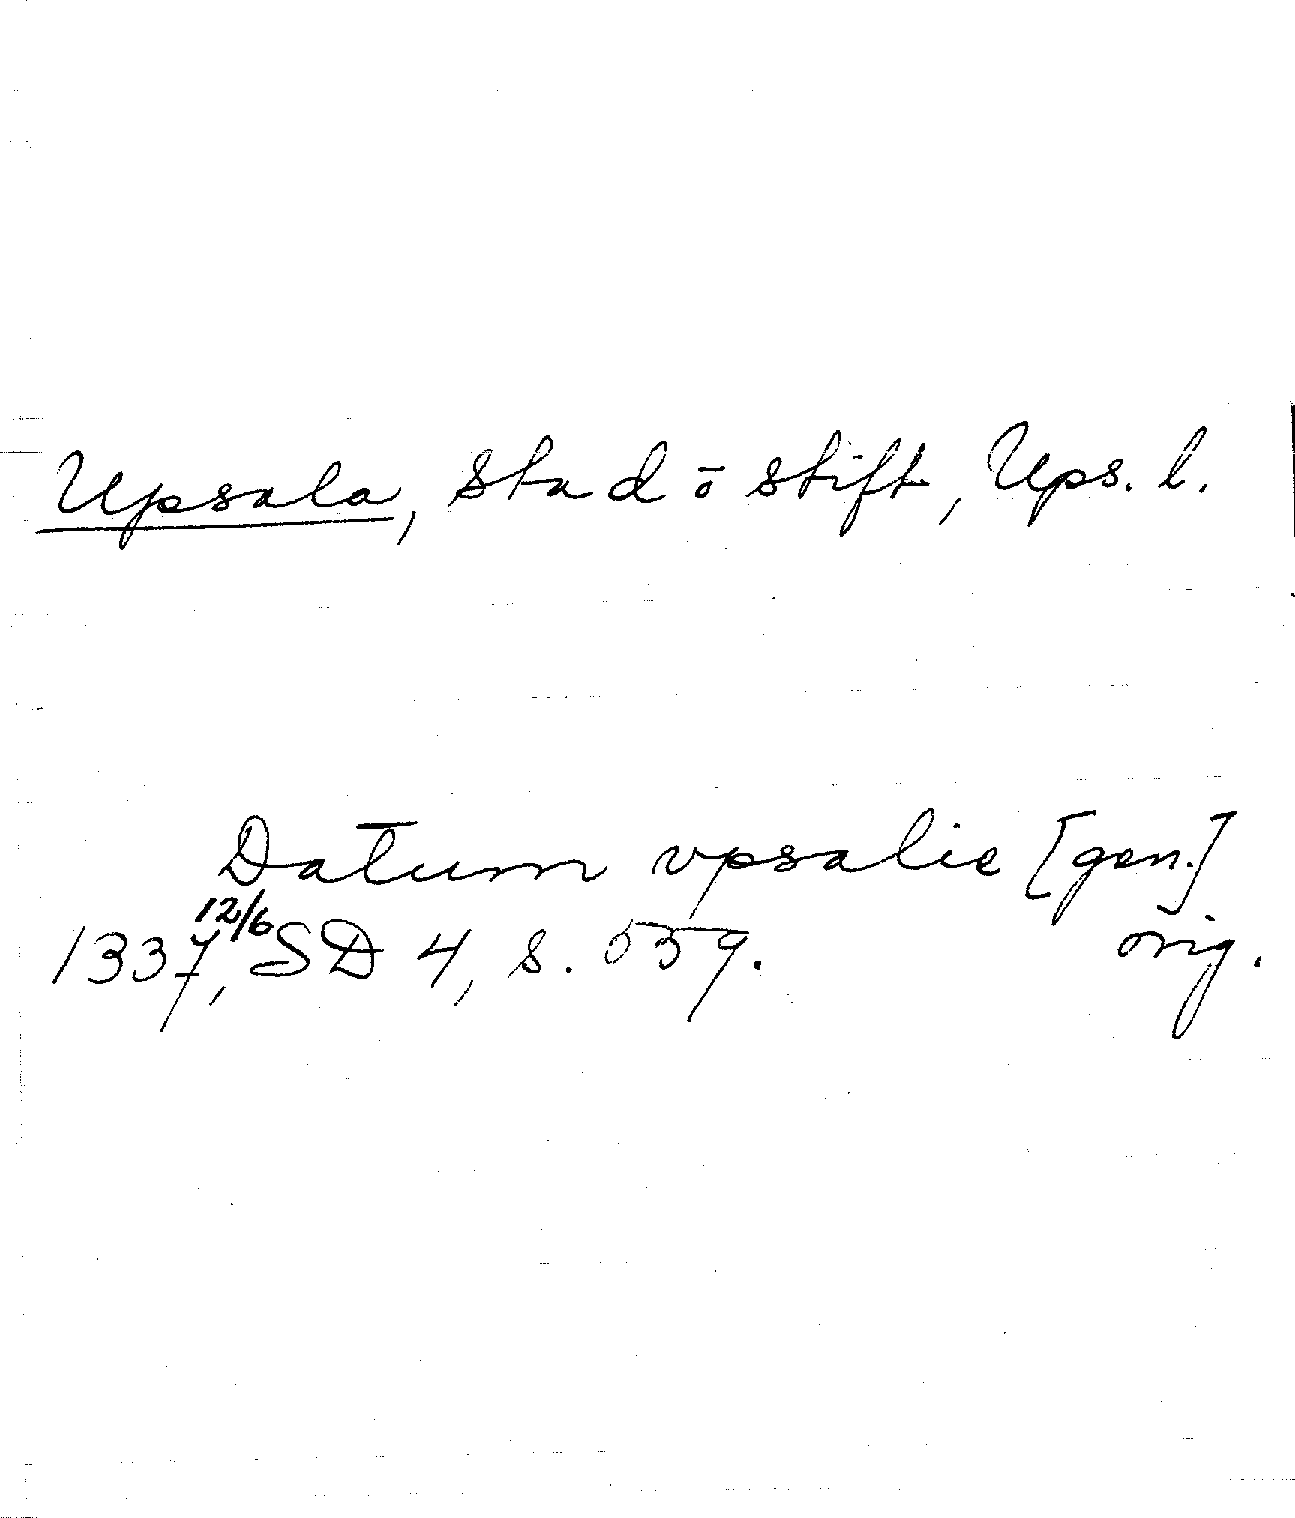 Upsala, stad o stift, Ups. l.
Datum vpsalie [gen.]
1337 12/6, SD 4, s. 559. orig.